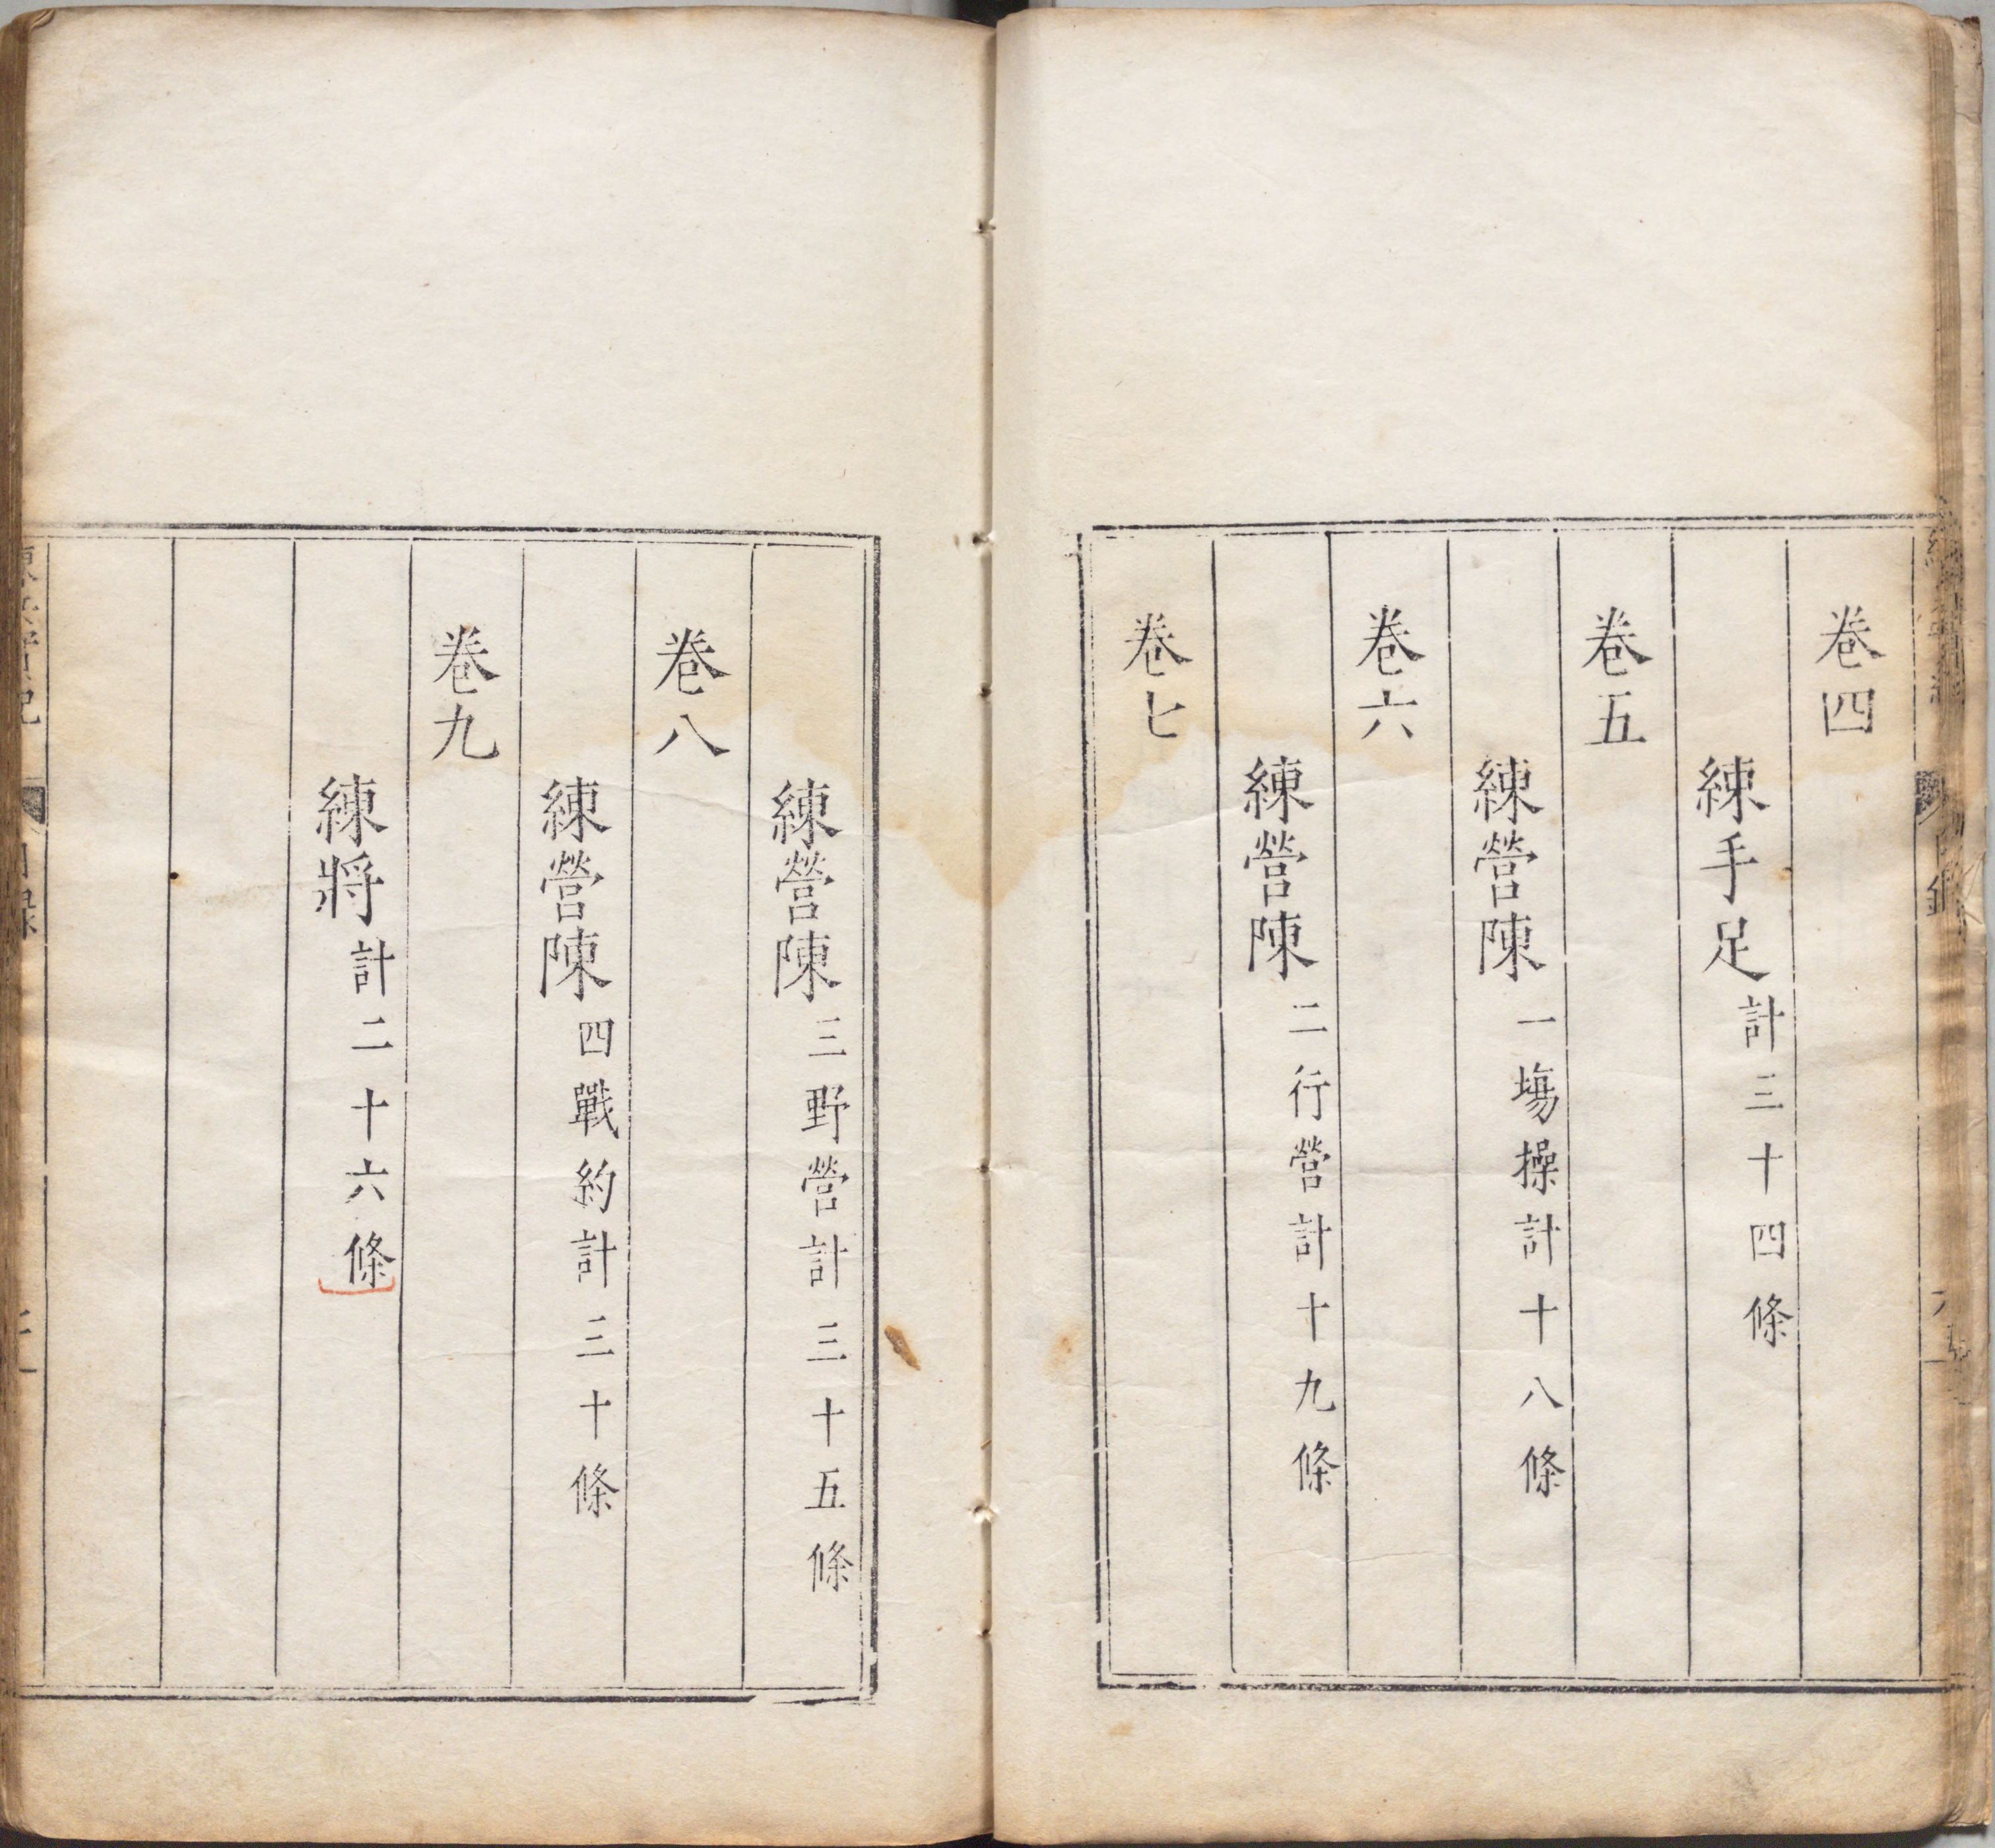 卷四
練手足計三十四條
卷五
練營陳一塲操計十八條
卷六
練營陳二行營計十九條
卷七
練營陳三野營計三十五條
卷八
練營陳四戰約計三十條
卷九
練將計二十六條